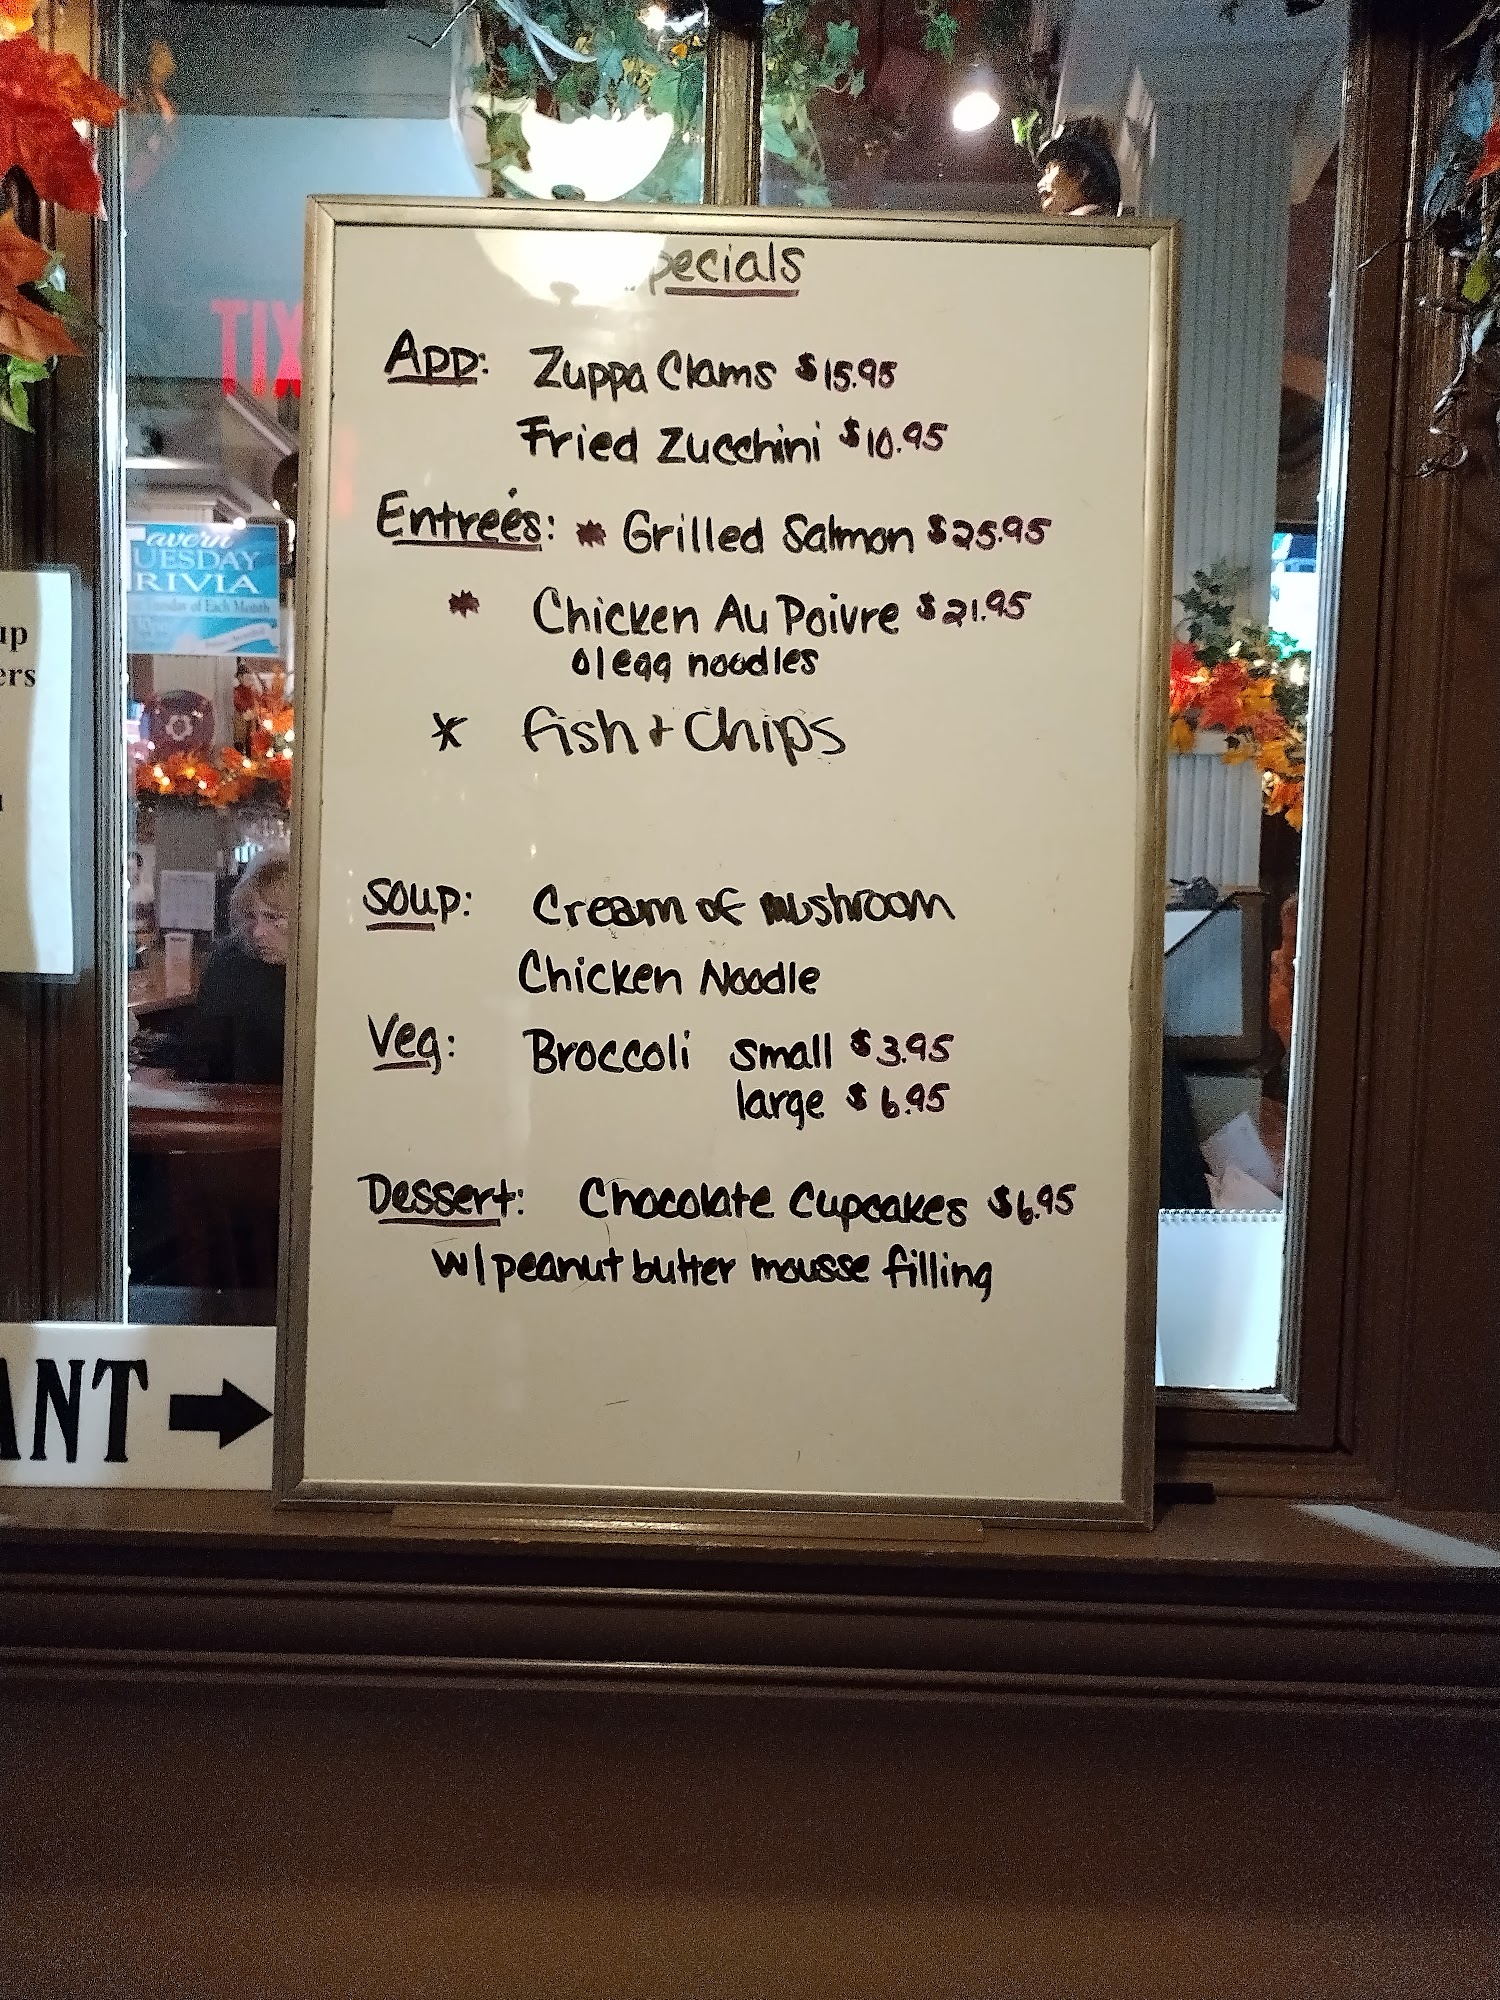 pecials
App: Zuppa Clams $15.95
Fried Zucchini $10.95
Entreés: * Grilled Salmon $25.95
* Chicken Au Poivre $21.95
o/egg noodles
* Fish + Chips
Soup: Cream of mushroom
Chicken Noodle
Veg: Broccoli small $3.95
large $6.95
Dessert: Chocolate Cupcakes $6.95
w/peanut butter mousse filling
TIX
avern
UESDAY
RIVIA
Tuesday of Each Month
up
ers
ANT